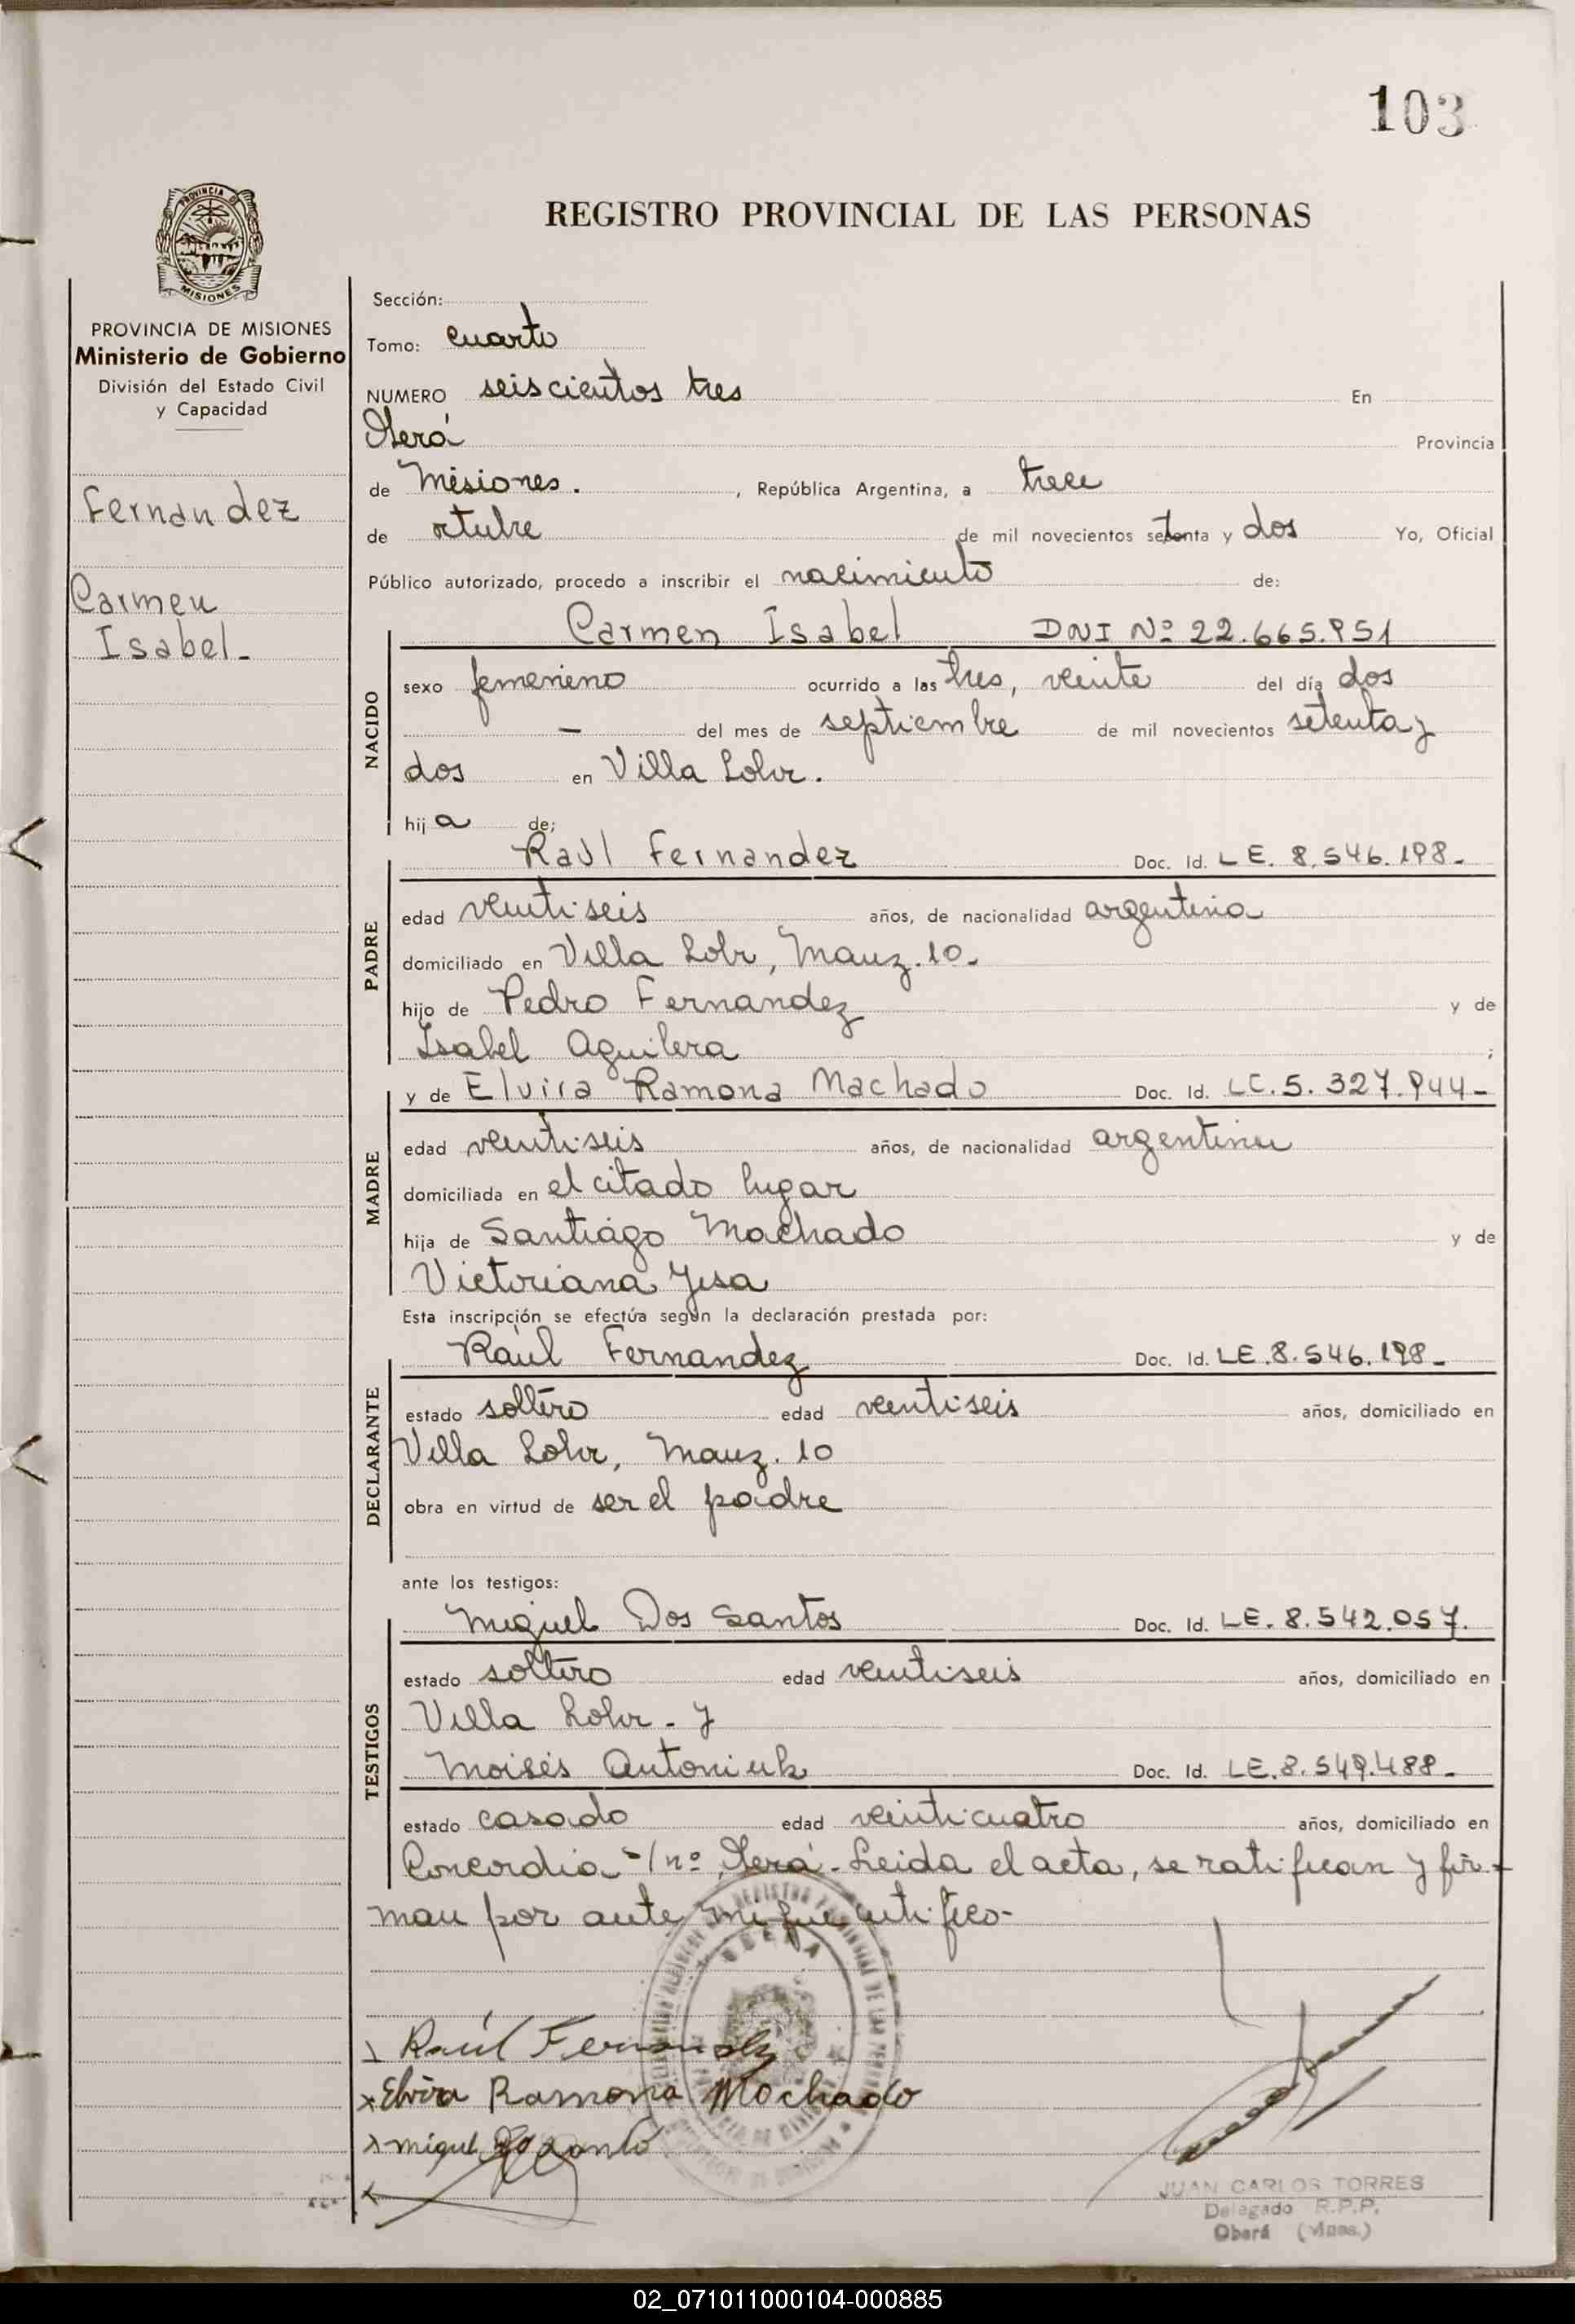 103
REGISTRO PROVINCIAL DE LAS PERSONAS
PROVINCIA DE MISIONES
Ministerio de Gobierno
División del Estado Civil
y Capacidad
Fernandez
Carmen
Isabel-
Sección:
Tomo: cuarto
NUMERO seiscientos tres En
Oberá Provincia
de Misiones. , República Argentina, a trece
de octubre de mil novecientos setenta y dos Yo, Oficial
Público autorizado, procedo a inscribir el nacimiento de:
NACIDO
Carmen Isabel DNI Nº 22.665.951
sexo femenino ocurrido a las tres, veinte del día dos
- del mes de septiembre de mil novecientos setenta y
dos en Villa Lohr.
hija de:
PADRE
Raúl Fernandez Doc. Id. LE. 8.546.198-
edad veintiseis años, de nacionalidad argentina
domiciliado en Villa Lohr, Manz. 10-
hijo de Pedro Fernandez y de
Isabel Aguilera ;
MADRE
y de Elvira Ramona Machado Doc. Id. LC. 5.327.944-
edad veintiseis años, de nacionalidad argentina
domiciliada en el citado lugar
hija de Santiago Machado y de
Victoriana
Esta inscripción se efectúa según la declaración prestada por:
DECLARANTE
Raúl Fernandez Doc. Id. LE. 8.546.198-
estado soltero edad veintiseis años, domiciliado en
Villa Lohr, Manz. 10
obra en virtud de ser el padre
ante los testigos:
TESTIGOS
Miguel Dos Santos Doc. Id. LE. 8.542.057.
estado soltero edad veintiseis años, domiciliado en
Villa Lohr - y
Moisés Antoniuk Doc. Id. LE. 8.549.488-
estado casado edad veinticuatro años, domiciliado en
Concordia s/nº, Oberá - Leida el acta, se ratifican y fir-
man por ante mi que certifico-
Raúl Fernandez
Elvira Ramona Machado
miguel
JUAN CARLOS TORRES
Delegado R.P.P.
Oberá (Mnes.)
02_071011000104-000885